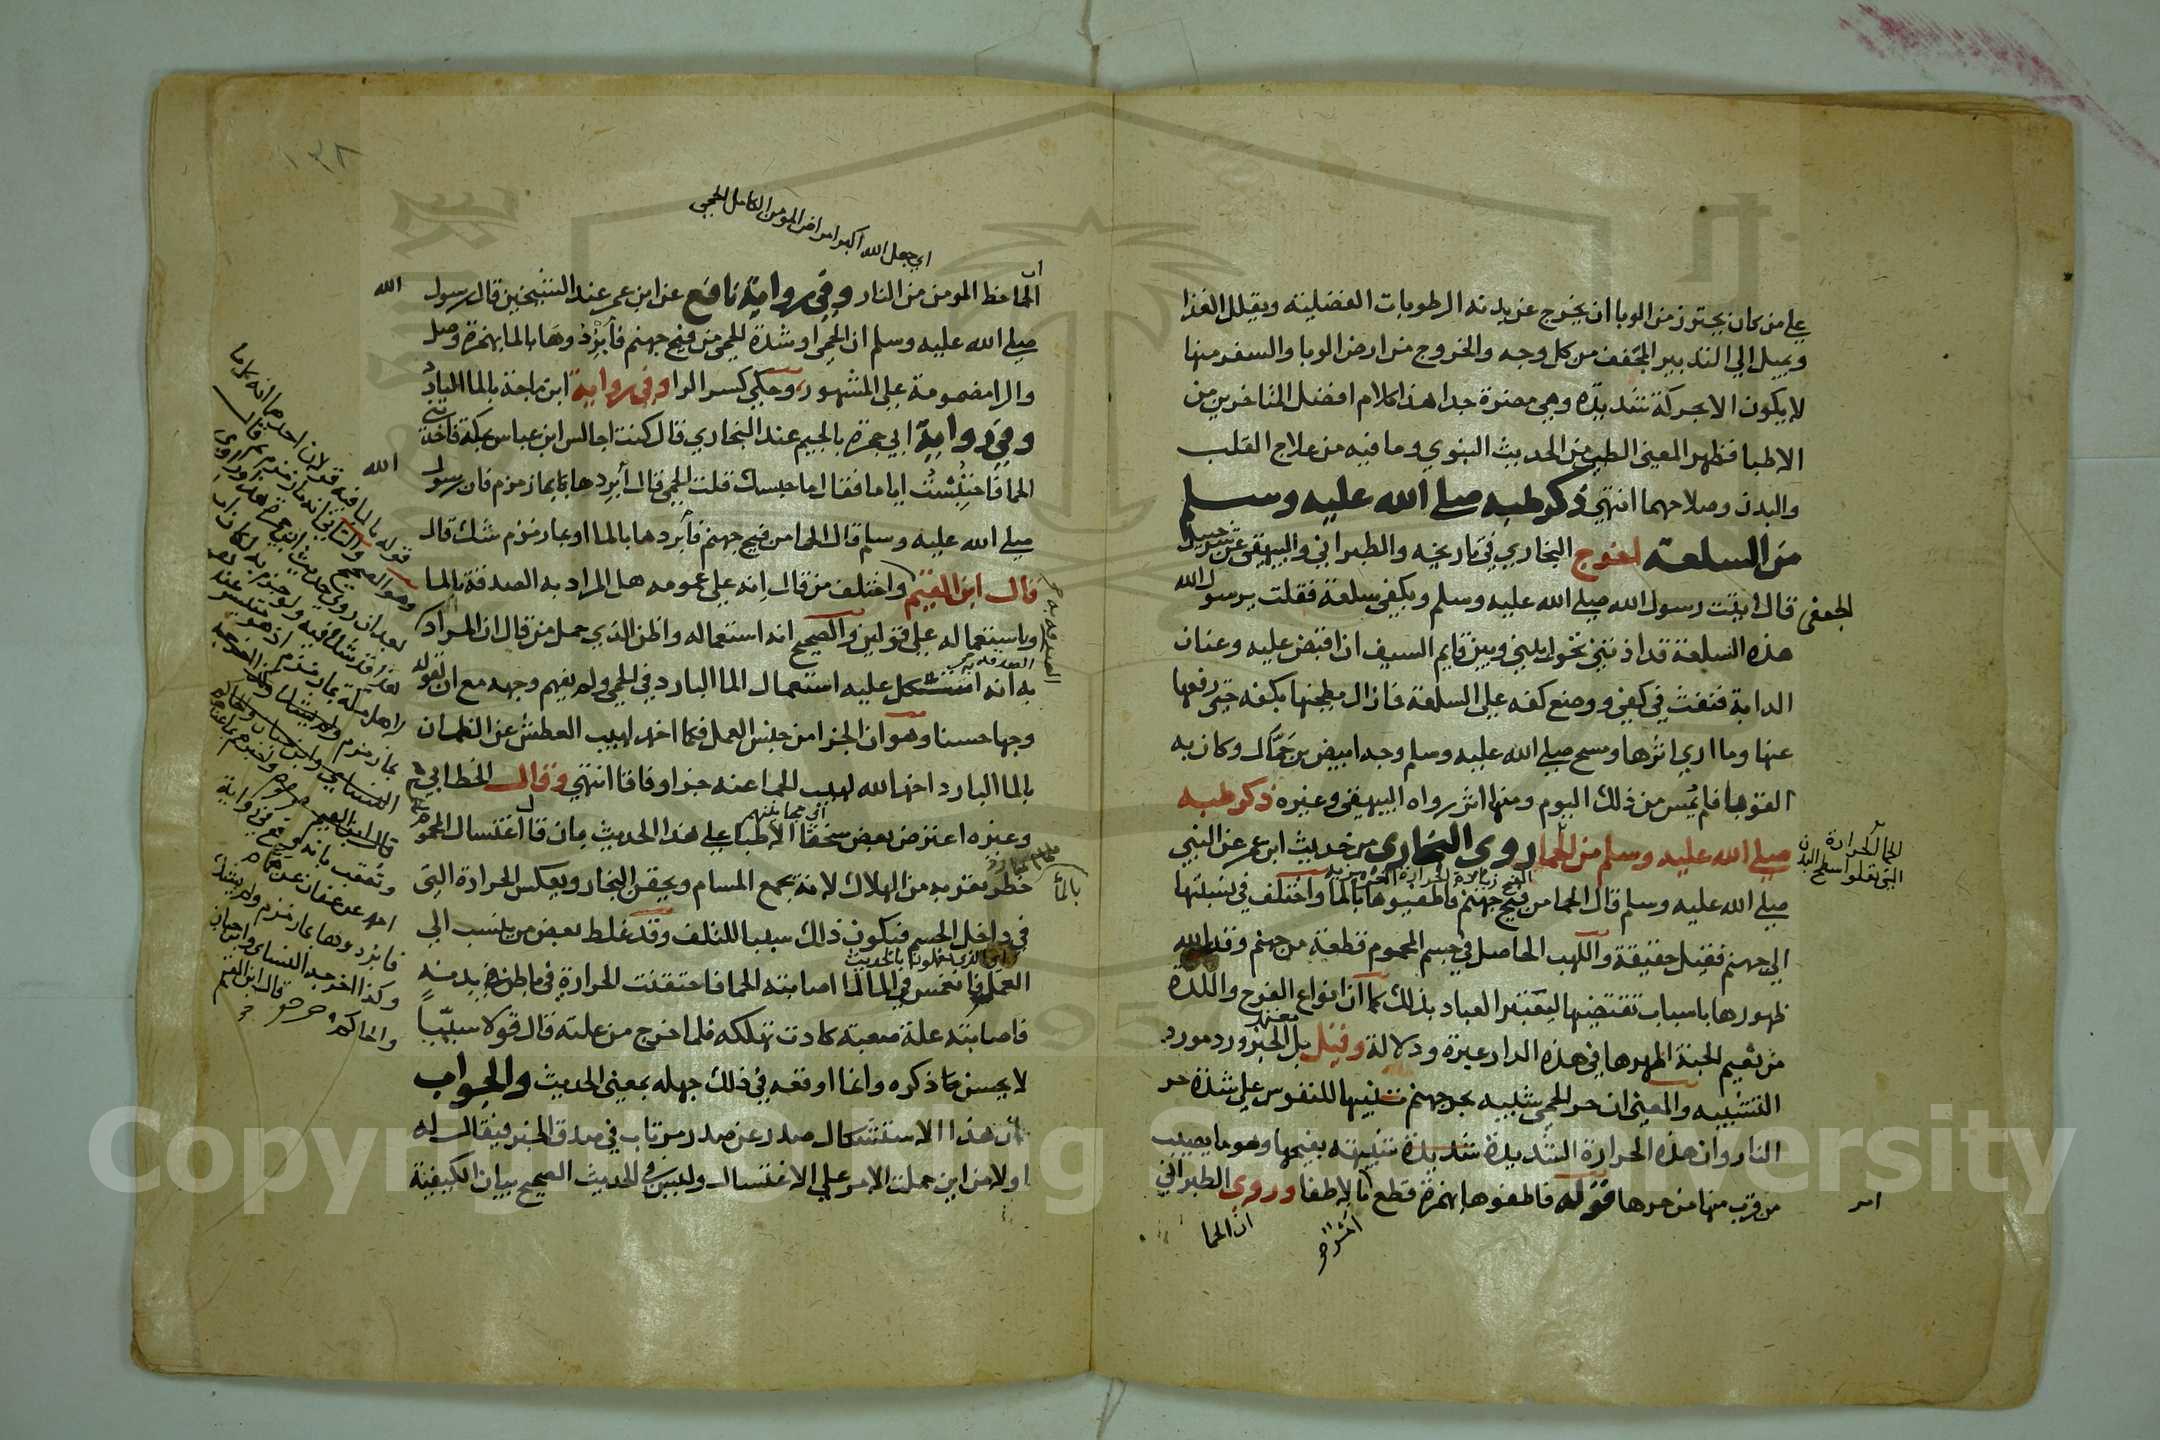 على من كان يحترز من الوبا ان يخرج عن بدنه الرطوبات الفضلية ويقلل الغذا
ويميل الي التدبير المجفف من كل وجه والخروج من ارض الوبا والسفر منها
لا يكون الا بحركة شديدة وهي مضرة جدا هذا كلام افضل المتاخرين من
الاطبا فظهر المعني الطبي من الحديث النبوي وما فيه من علاج القلب
والبدن وصلاحهما انتهي ذكر طبه صلى الله عليه وسلم
من السلعة اخرج البخاري في تاريخه والطبراني والبيهقي عن شرحبيل
الجعفي قال اتيت رسول الله صلى الله عليه وسلم وبكفي سلعة فقلت يرسول الله
هذه السلعة قد اذتني تحول بيني وبين قايم السيف ان اقبض عليه وعنان
الدابة فنفث في كفي ووضع كفه على السلعة فما زال يطحنها بكفه حتى رفعها
عنها وما اري اثرها ومسح صلى الله عليه وسلم وجه ابيض بن حمال وكان به
القوبا فلم يمس من ذلك اليوم ومنها اثر رواه البيهقي وغيره ذكر طبه
صلى الله عليه وسلم من الحما روي البخاري من حديث ابن عمر عن النبي
الحما الحرارة
التي تعلوا سطح البدن
صلى الله عليه وسلم قال الحما من فيح جهنم فاطفيوها بالما واختلف في نسبتها
الي جهنم فقيل حقيقة واللهب الحاصل في جسم المحموم قطعة من جهنم وقدر الله
ظهورها باسباب تقتضيها ليعتبر العباد بذلك كما ان انواع الفرح واللذة
من نعيم الجنة اظهرها في هذه الدار عبرة ودلالة وقيل بل الخبر ورد مورد
التشبيه والمعني ان حر الحمي شبيه بحر جهنم تنبيها للنفوس على شدة حر
النار وان هذه الحرارة الشديدة شبيهة بفيحها وهو ما يصيب
من قرب منها من حرها قوله فاطفوها بهمزة قطع امر بالاطفا وروي الطبراني
ان الحما
١٣٨
اي جعل الله اكبر امراض المومن الكامل الحمي
الحما حظ المومن من النار وفي رواية نافع عن ابن عمر عند الشيخين قال رسول الله
صلى الله عليه وسلم ان الحمى او شدة الحمى من فيح جهنم فابردوها بالما بهمزة وصل
والرا مضمومة على المشهور وحكي كسر الرا وفي رواية ابن ماجة بالما البارد
وفي رواية ابي جمرة بالجيم عند البخاري قال كنت اجالس ابن عباس بمكة فاخذتني
الحما فاحتبست اياما فقال ما حبسك قلت الحمي قال ابردها بماء زمزم فان رسول الله
صلى الله عليه وسلم قال الحما من فيح جهنم فابردها بالما او بماء زمزم شك قال
قال ابن القيم واختلف من قال انه على عمومه هل المراد به الصدقة بالما
او باستعماله على قولين والصحيح انه استعماله واظن الذي حمل من قال ان المراد
به انه استشكل عليه استعمال الما البارد في الحمي ولم يفهم وجهه مع ان لقوله
وجها حسنا وهو ان الجزا من جنس العمل فكما اخمد لهيب العطش عن الظمان
بالما البارد اخمد الله لهيب الحما عنه جزا وفاقا انتهي وقال الخطابي
وغيره اعترض بعض سخفا الاطبا على هذا الحديث بان قال اغتسال المحموم
بالما خطر يقربه من الهلاك لانه يجمع المسام ويحقن البخار ويعكس الحرارة التي
في داخل الجسم فيكون ذلك سببا للتلف وقد غلط بعض من ينسب الي
العمل فانغمس في الما لما اصابته الحما فاحتقنت الحرارة في باطن بدنه
فاصابته علة صعبة كادت تهلكه فلما خرج من علته قال قولا سييا
لا يحسن ذكره وانما اوقعه في ذلك جهله بمعني الحديث والجواب
ان هذا الاستشكال صدر عن صدر مرتاب في صدق الخبر فيقال له
اولا من اين حملت الامر على الاغتسال وليس في الحديث الصحيح بيان الكيفية
قوله بالما فيه قولان احدهما انه كل ما
وهو الصحيح والثاني انه ماء زمزم
قال ابن القيم
وتعقب بانه وقع في رواية
احمد عن عفان عن همام
فابردوها بماء زمزم ولم يشك
وكذا اخرجه النسائي وابن حبان
والحاكم قال ابن القيم
Copyright © King Saud University
1957